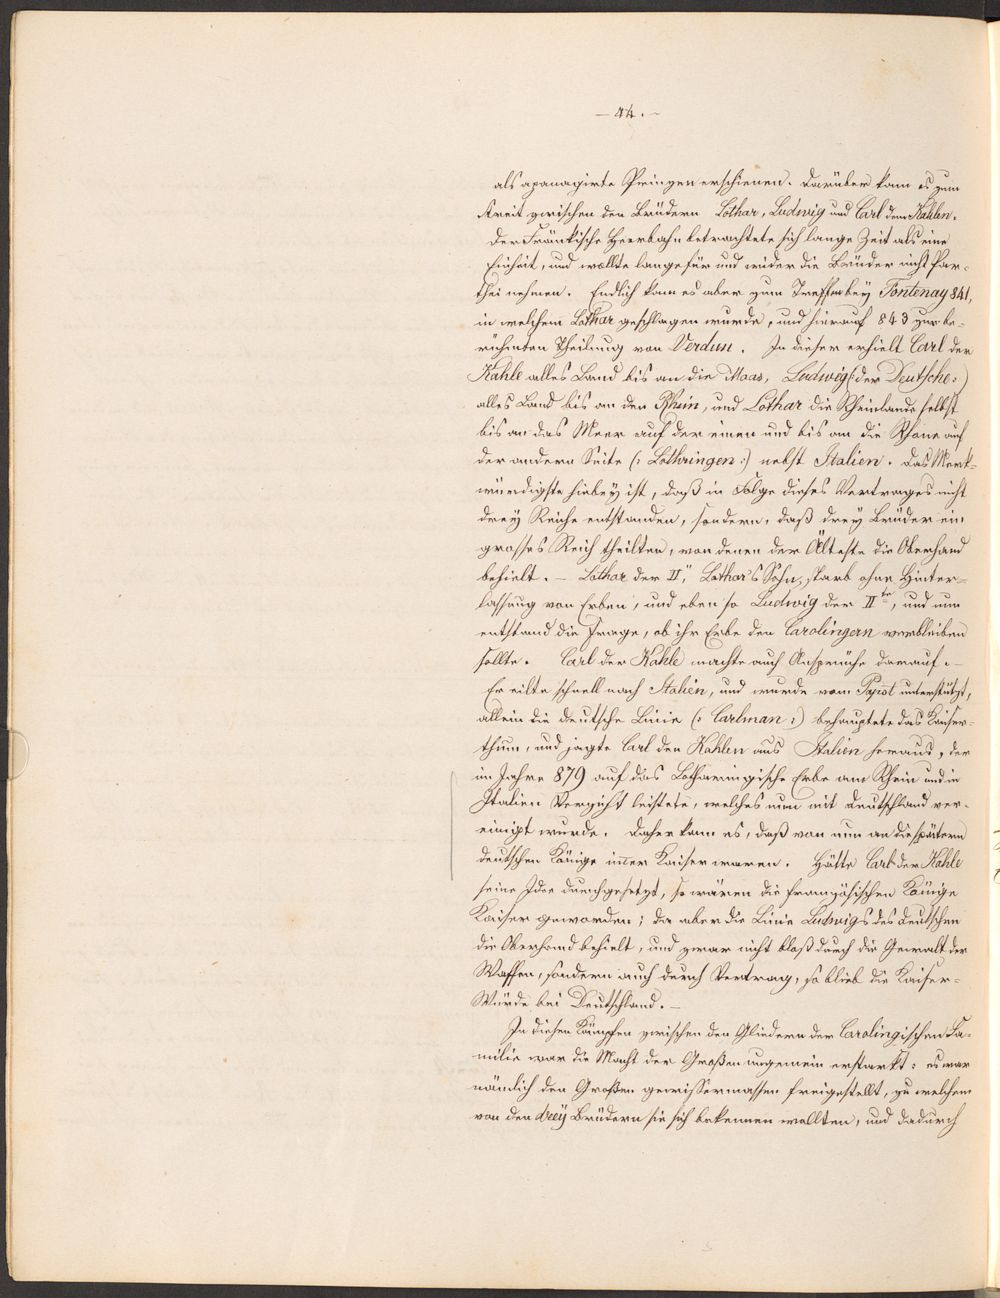 — 44. —
als apanagirte Prinzen erschienen. Darüber kam es zum
Streit zwischen den Brüdern Lothar, Ludwig und Carl dem Kahlen.
Der Fränkische Heerbahn betrachtete sich lange Zeit als eine
Einheit, und wollte lange für und wider die Brüder nicht Par-
thei nehmen. Endlich kam es aber zum Treffen bey Fontenay 841,
in welchem Lothar geschlagen wurde, und hierauf 843 zur be-
rühmten Theilung von Verdun. In dieser erhielt Carl der
Kahle alles Land bis an die Maas, Ludwig (: der Deutsche :)
alles Land bis an den Rhein, und Lothar die Rheinlande selbst
bis an das Meer auf der einen und bis an die Rhone auf
der andern Seite (: Lothringen :) nebst Italien. Das Merk-
würdigste hiebey ist, daß in Folge dieses Vertrages nicht
drey Reiche entstanden, sondern, daß drey Brüder ein
grosses Reich theilten, von denen der Älteste die Oberhand
behielt. — Lothar der II, Lothar's Sohn, starb ohne Hinter-
lassung von Erben, und eben so Ludwig der II te, und nun
entstand die Frage, ob ihr Erbe den Carolingern verbleiben
sollte. Carl der Kahle machte auch Ansprüche darauf. —
Er eilte schnell nach Italien, und wurde vom Papst unterstützt,
allein die deutsche Linie (: Carlman :) behauptete das Kaiser-
thum, und jagte Carl den Kahlen aus Italien heraus, der
im Jahre 879 auf das Lotharingische Erbe am Rhein und in
Italien Verzicht leistete, welches nun mit Deutschland ver-
einigt wurde. Daher kam es, daß von nun an die spätern
deutschen Könige immer Kaiser waren. Hätte Carl der Kahle
seine Idee durchgesetzt, so wären die französischen Könige
Kaiser geworden; da aber die Linie Ludwigs des Deutschen
die Oberhand behielt, und zwar nicht bloß durch die Gewalt der
Waffen, sondern auch durch Vertrag, so blieb die Kaiser-
Würde bei Deutschland. —
In diesen Kämpfen zwischen den Gliedern der Carolingischen Fa-
milie war die Macht der Großen ungemein erstarkt: es war
nämlich den Großen gewissermassen freigestellt, zu welchem
von den drey Brüdern sie sich bekennen wollten, und dadurch